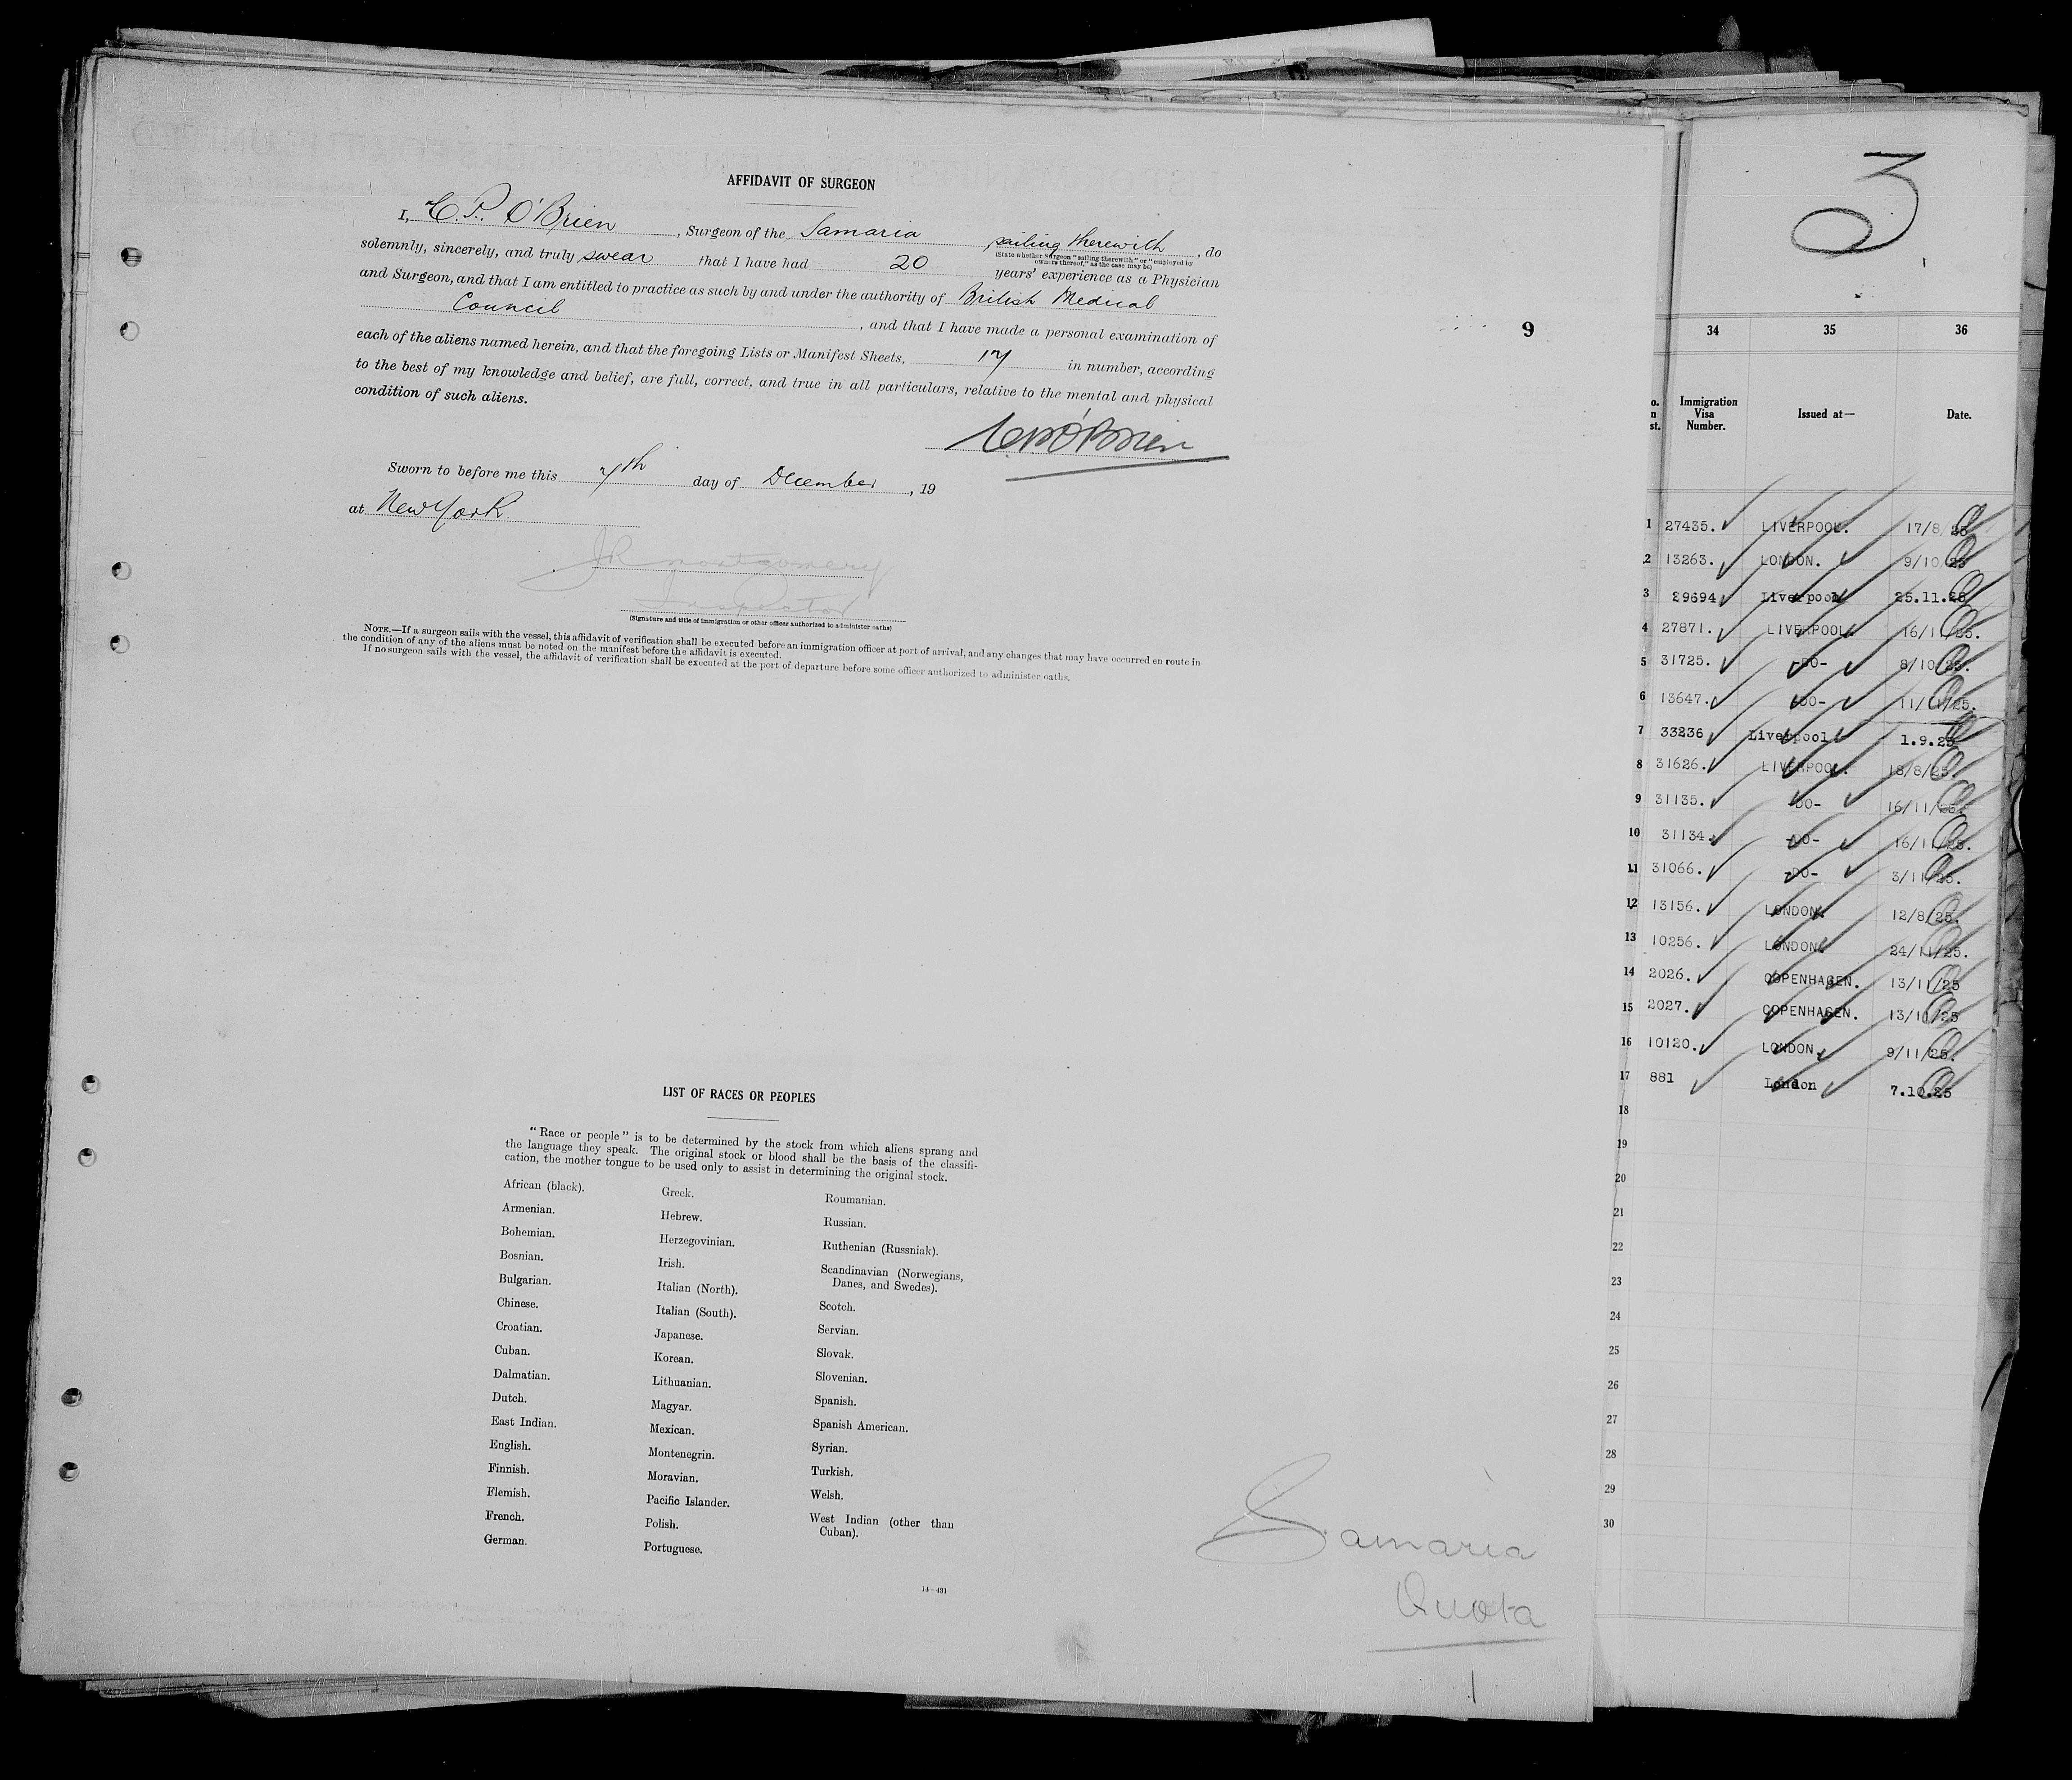 AFFIDAVIT OF SURGEON
I, C. P. O'Brien, Surgeon of the Samaria sailing therewith, do
(State whether Surgeon "sailing therewith" or "employed by
owners thereof," as the case may be)
solemnly, sincerely, and truly swear that I have had 20 years' experience as a Physician
and Surgeon, and that I am entitled to practice as such by and under the authority of British Medical
Council, and that I have made a personal examination of
each of the aliens named herein, and that the foregoing Lists or Manifest Sheets, 17 in number, according
to the best of my knowledge and belief, are full, correct, and true in all particulars, relative to the mental and physical
condition of such aliens.
C.P. O'Brien
Sworn to before me this 7th day of December, 19
at New York.
JR Montgomery
Inspector
(Signature and title of immigration or other officer authorized to administer oaths)
NOTE.—If a surgeon sails with the vessel, this affidavit of verification shall be executed before an immigration officer at port of arrival, and any changes that may have occurred en route in
the condition of any of the aliens must be noted on the manifest before the affidavit is executed.
If no surgeon sails with the vessel, the affidavit of verification shall be executed at the port of departure before some officer authorized to administer oaths.
9
LIST OF RACES OR PEOPLES
"Race or people" is to be determined by the stock from which aliens sprang and
the language they speak. The original stock or blood shall be the basis of the classifi-
cation, the mother tongue to be used only to assist in determining the original stock.
African (black).
Armenian.
Bohemian.
Bosnian.
Bulgarian.
Chinese.
Croatian.
Cuban.
Dalmatian.
Dutch.
East Indian.
English.
Finnish.
Flemish.
French.
German.
Greek.
Hebrew.
Herzegovinian.
Irish.
Italian (North).
Italian (South).
Japanese.
Korean.
Lithuanian.
Magyar.
Mexican.
Montenegrin.
Moravian.
Pacific Islander.
Polish.
Portuguese.
Roumanian.
Russian.
Ruthenian (Russniak).
Scandinavian (Norwegians,
Danes, and Swedes).
Scotch.
Servian.
Slovak.
Slovenian.
Spanish.
Spanish American.
Syrian.
Turkish.
Welsh.
West Indian (other than
Cuban).
14-431
Samaria
Quota
3
34 35 36
o.
n
st.
Immigration
Visa
Number.
Issued at—
Date.
1 27435. LIVERPOOL. 17/8/25
2 13263. LONDON. 9/10/25
3 29694 Liverpool 25.11.25
4 27871. LIVERPOOL. 16/11/25.
5 31725. -DO- 8/10/25.
6 13647. -DO- 11/11/25.
7 33236 Liverpool 1.9.25
8 31626. LIVERPOOL. 18/8/25.
9 31135. -DO- 16/11/25.
10 31134. -DO- 16/11/25.
11 31066. -DO- 3/11/25.
12 13156. LONDON. 12/8/25.
13 10256. LONDON. 24/11/25.
14 2026. COPENHAGEN. 13/11/25
15 2027. COPENHAGEN. 13/11/25
16 10120. LONDON. 9/11/25.
17 881 London 7.10.25
18
19
20
21
22
23
24
25
26
27
28
29
30